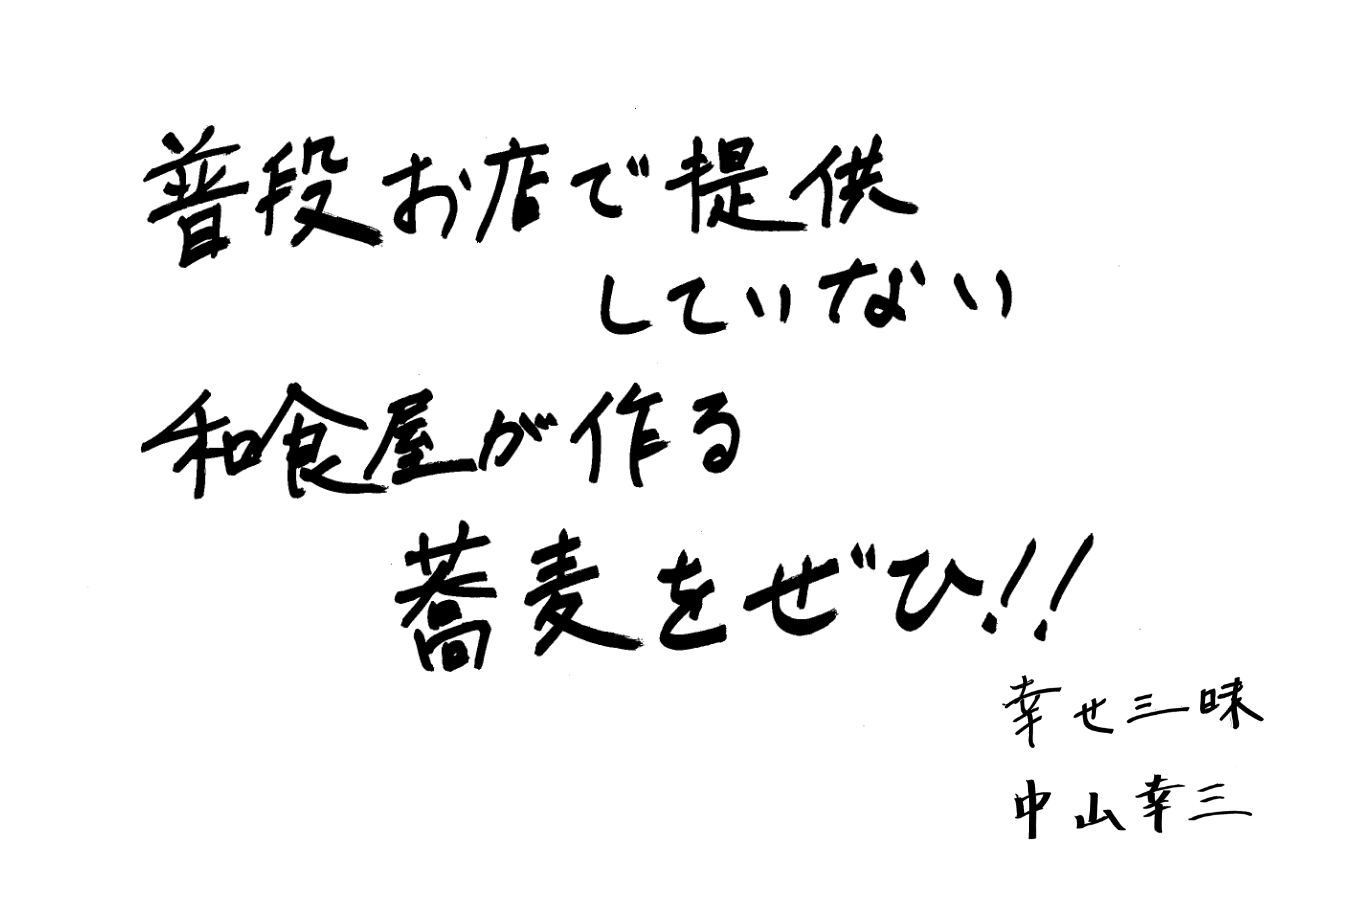 普段お店で提供
していない
和食屋が作る
蕎麦をぜひ!!
幸せ三昧
中山幸三